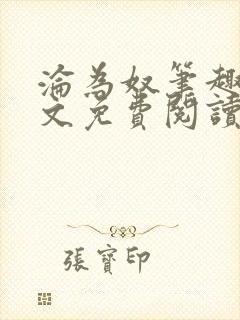 淪為奴筆趣
文免費閱讀
張寶印